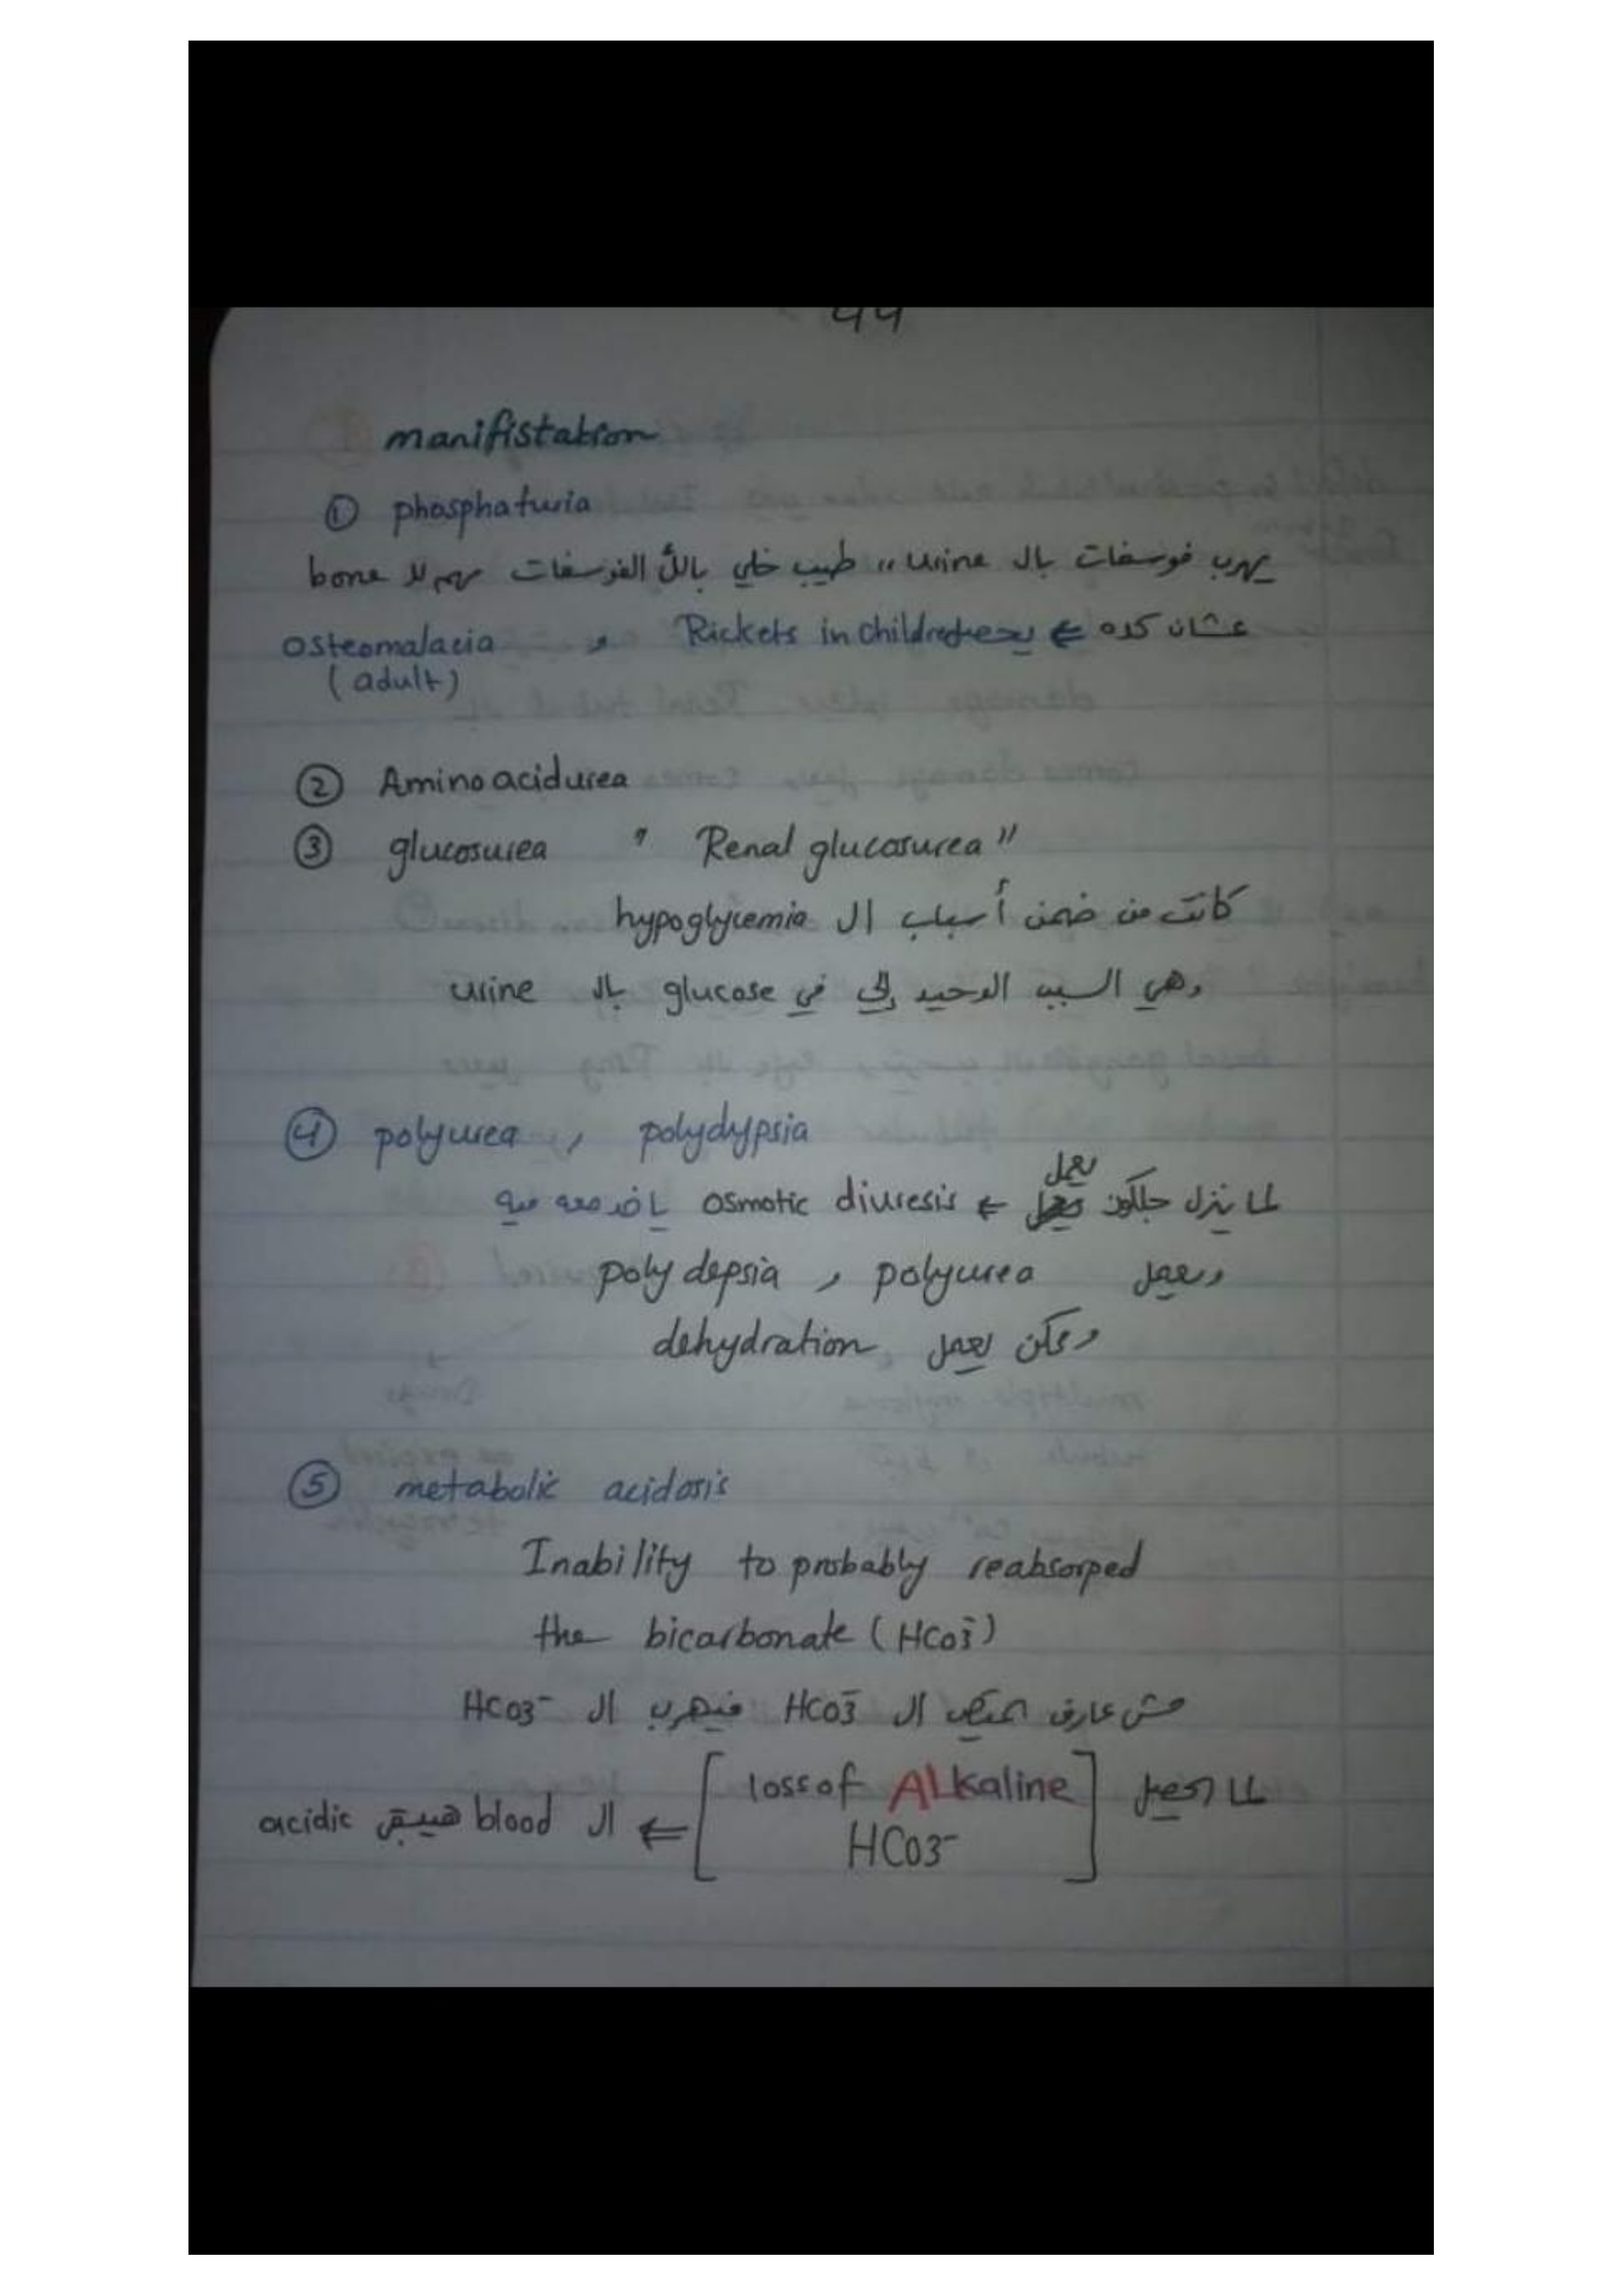 44
manifistation
① phosphaturia
يهرب فوسفات بال urine ،، طيب خلي بالك الفوسفات مهم لل bone
عشان كده ⇐ يحصل Rickets in children و osteomalacia
(adult)
② Amino acidurea
③ glucosurea " Renal glucosurea "
كانت من ضمن أسباب ال hypoglycemia
وهي السبب الوحيد إلي في glucose بال urine
④ polyurea , polydypsia
يعمل
لما ينزل جلكوز ⇐ osmotic diuresis ياخد معه ميه
ويعمل polyurea , polydepsia
وممكن يعمل dehydration
⑤ metabolic acidosis
Inability to probably reabsorped
the bicarbonate (HCO3-)
مش عارف امتص ال HCO3- فيهرب ال HCO3-
لما احصل [loss of ALkaline
HCO3-] ⇐ ال blood هيبقى acidic